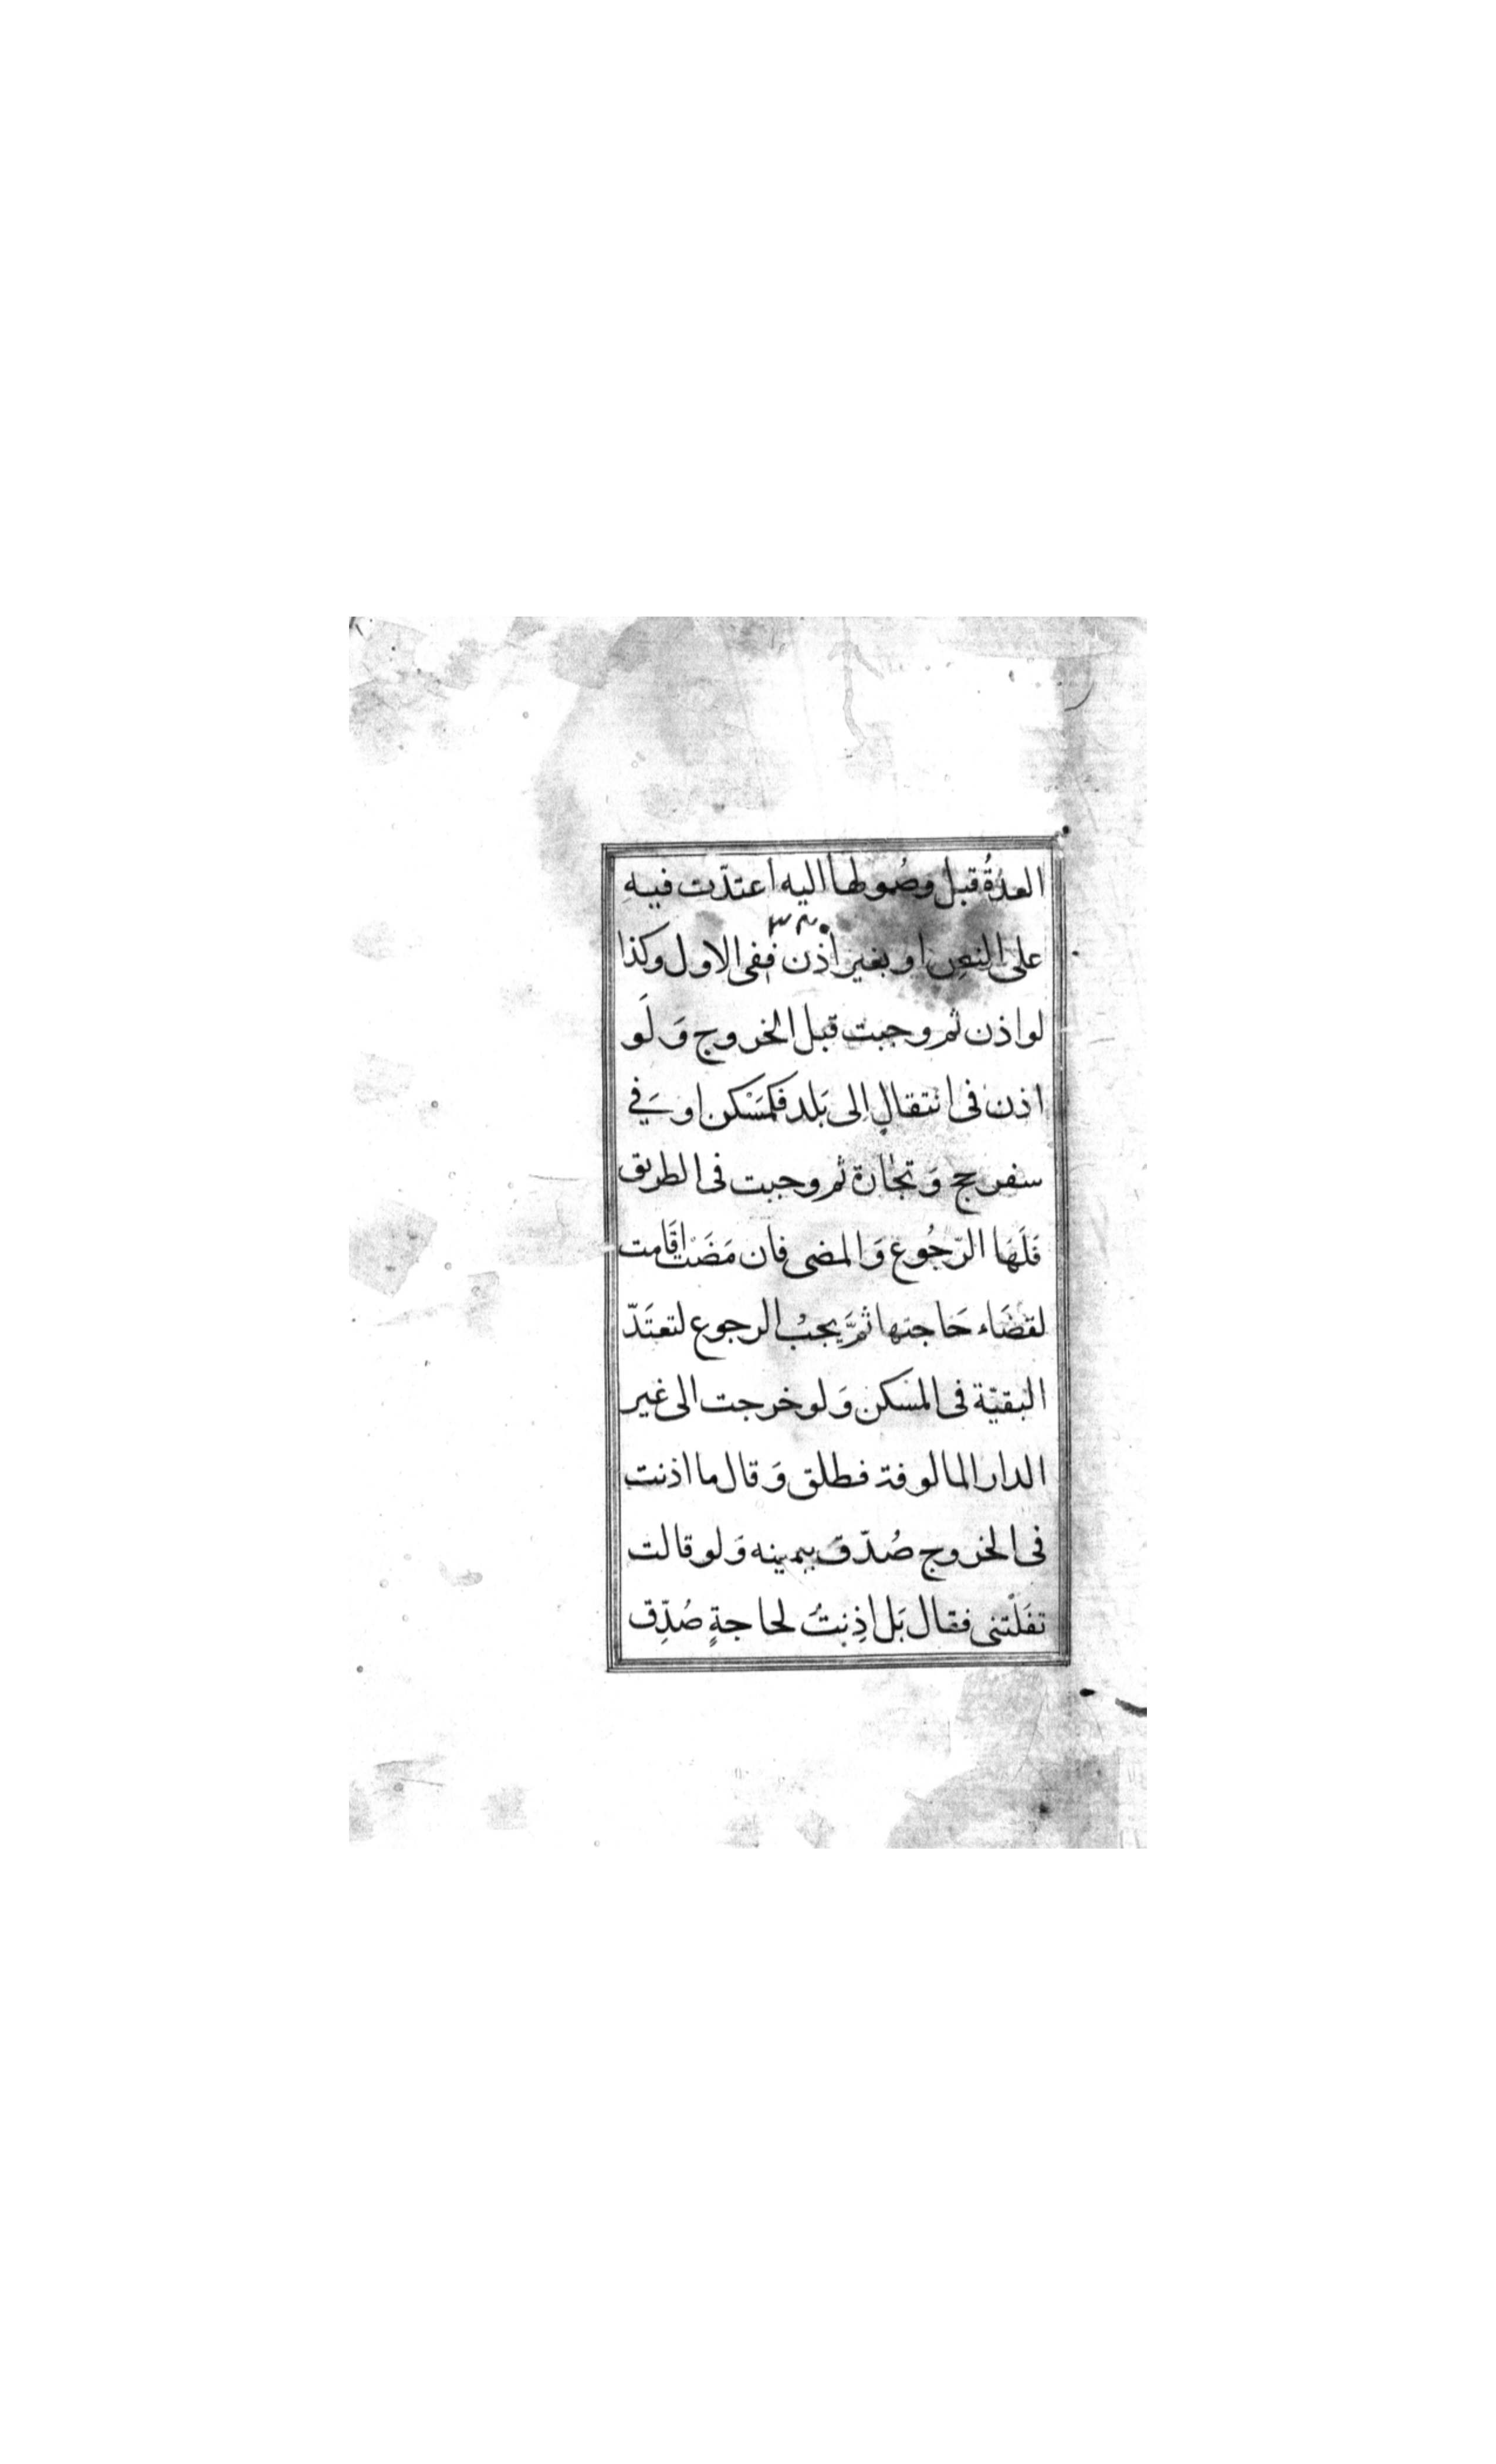 العدةُ قبل وصُولها اليه اعتدّت فيهِ
على النصِ او بغير اذن ففى الاول وكذا
لو اذن ثم وجبت قبل الخروج وَلَو
اذن فى انتقالٍ الى بَلد فكمَسْكن او فى
سفر حج وَتجارة ثم وجبت فى الطريق
فَلَهَا الرّجُوع وَالمضى فان مَضَتْ اقَامت
لقضَاء حَاجتها ثمَّ يجبْ الرجوع لتعتَدّ
البقيّة فى المسَكن وَلو خرجت الى غير
الدار المالوفة فطلق وَقال ما اذنت
فى الخروج صُدّق بيمينه وَلو قالت
نقَلْتنى فقال بَل اذِنتُ لحاجةٍ صُدِّق